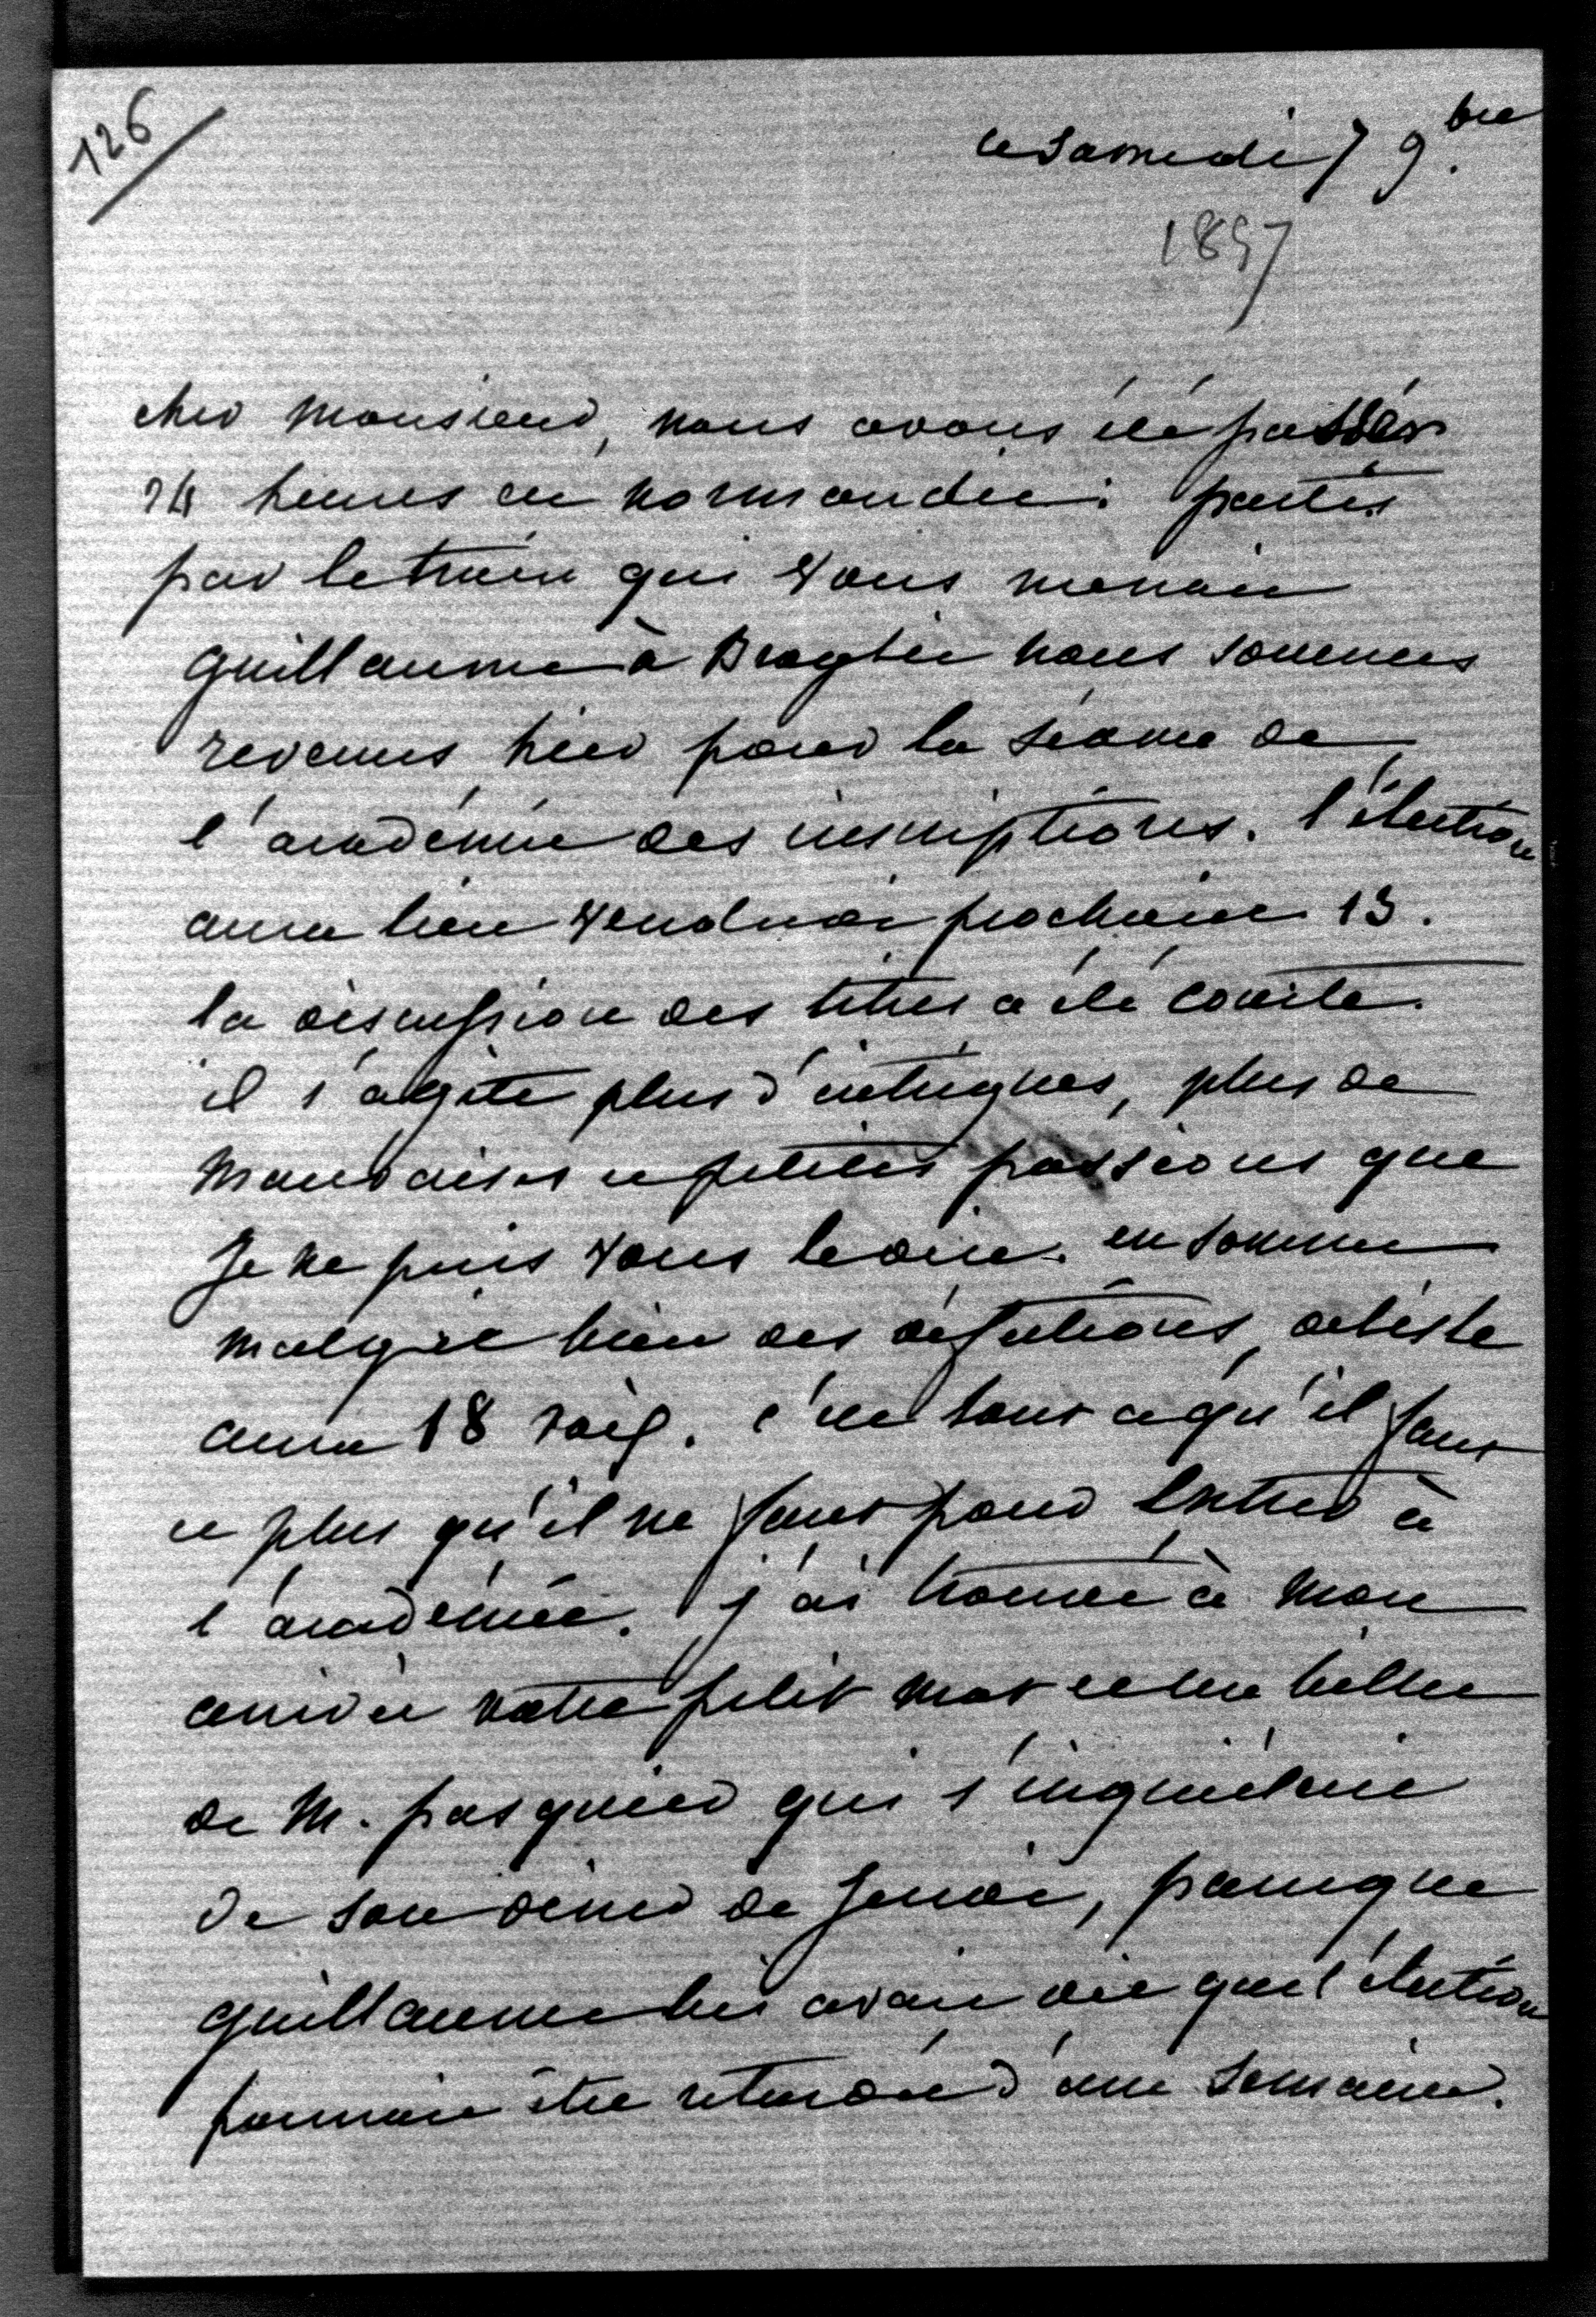 126
ce samedi 7 9.bre
1857
cher monsieur, nous avons été passer
24 heures en normandie. partis
par le train qui vous menait
guillaume à Broglie nous sommes
revenus hier pour la séance de
l'académie des inscriptions. l'élection
aura lieu vendredi prochain 13.
la discussion des titres a été courte.
il s'agite plus d'intrigues, plus de
mauvaises et petites passions que
je ne puis vous le dire. en somme
malgré bien des défections, delisle
aura 18 voix. c'est tout ce qu'il faut
et plus qu'il ne faut pour entrer à
l'académie. j'ai trouvé à mon
arrivée votre petit mot et un billet
de M. pasquier qui s'inquiétait
de son diner de jeudi, parceque
guillaume lui avait dit que l'élection
pourrait être retardée d'une semaine.